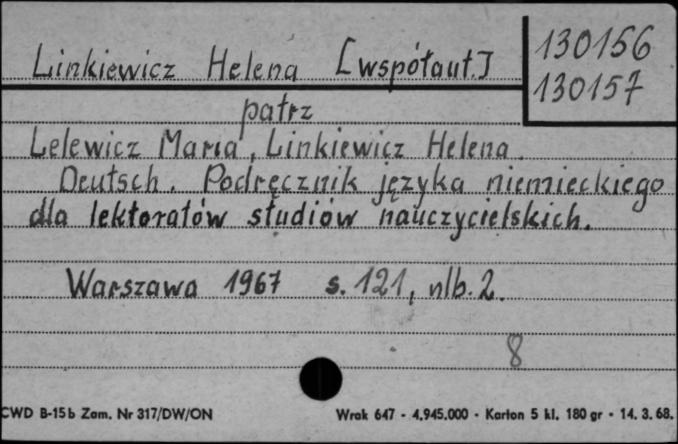 Linkiewicz Helena [współaut.]
130156
130157
patrz
Lelewicz Maria, Linkiewicz Helena.
Deutsch. Podręcznik języka niemieckiego
dla lektoratów studiów nauczycielskich.
Warszawa 1967 s. 121, nlb. 2.
8
CWD B-15b Zam. Nr 317/DW/ON
Wrak 647 - 4.945.000 - Karton 5 kl. 180 gr - 14. 3. 68.